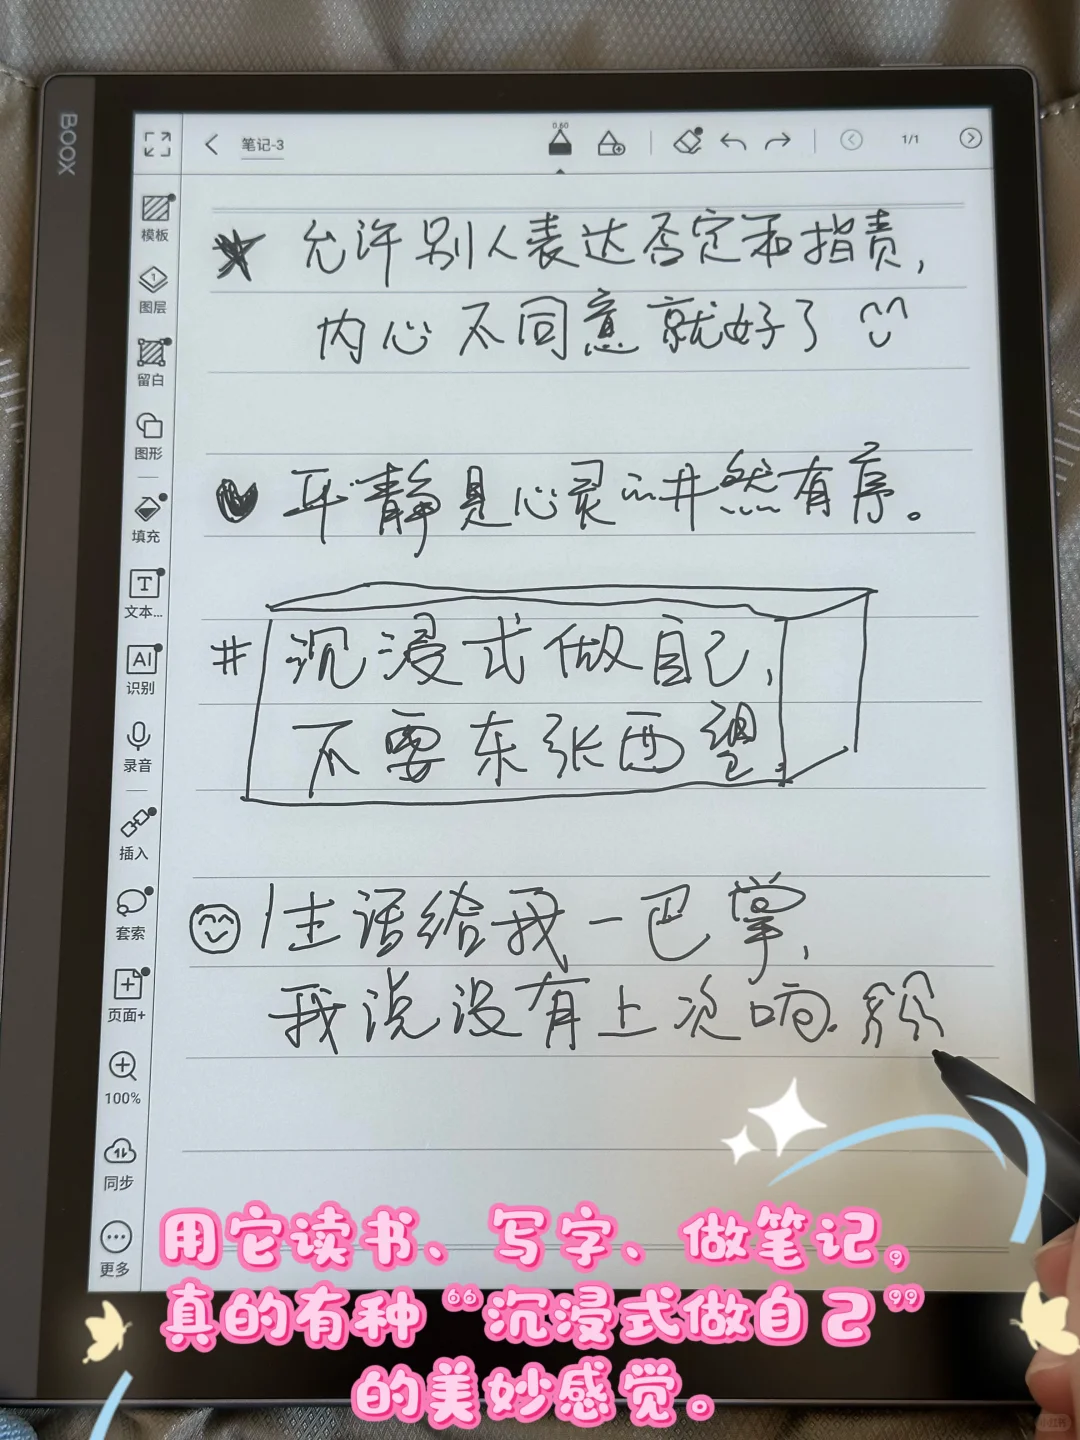 BOOX
笔记-3
0.60
1/1
模板
图层
留白
图形
填充
文本...
AI
识别
录音
插入
套索
页面+
100%
同步
更多
允许别人表达否定和指责,
内心不同意就好了
平静是心灵的井然有序。
# 沉浸式做自己,
不要东张西望
生活给我一巴掌,
我说没有上次响.
用它读书、写字、做笔记,
真的有种“沉浸式做自己”
的美妙感觉。